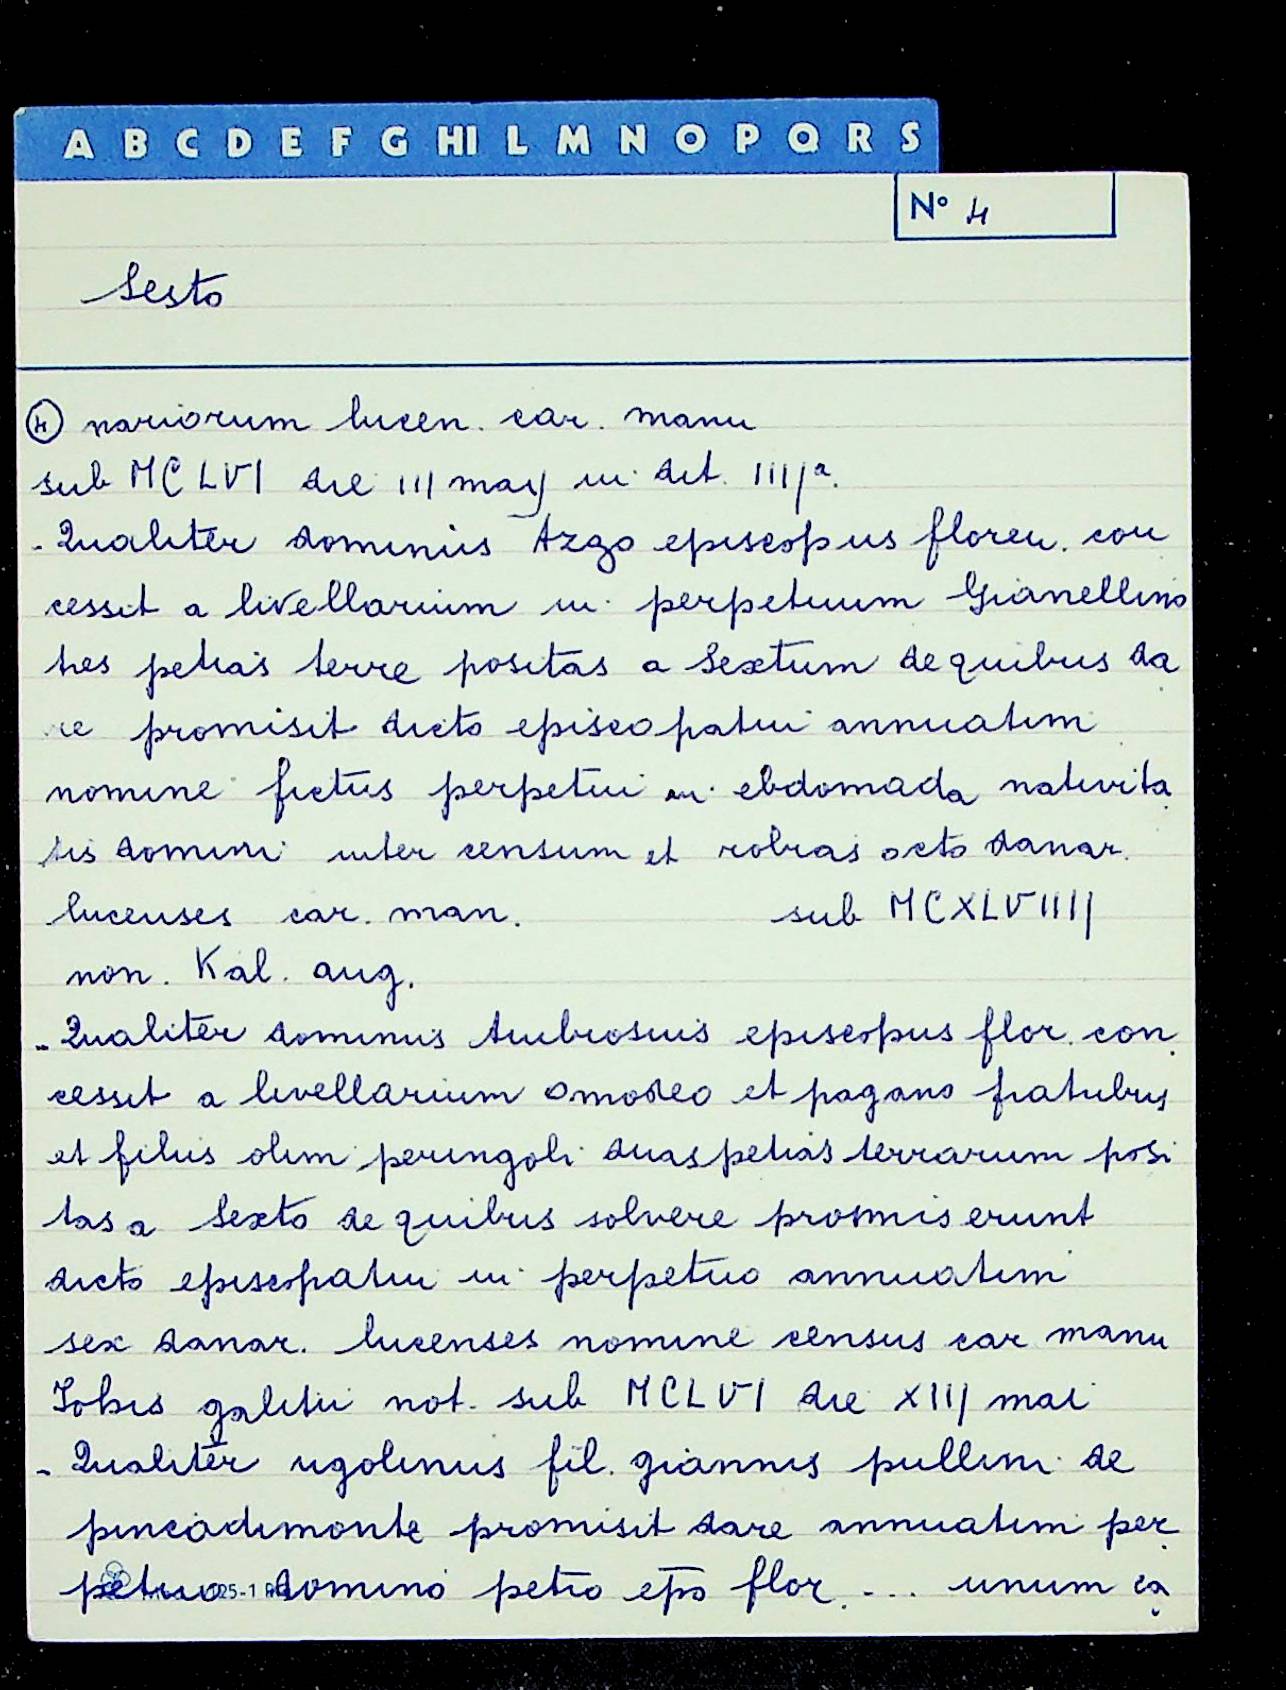 A B C D E F G HI L M N O P Q R S
N° 4
Sesto
④ nariorum lucen. car. manu
sub MCLVI die III maij in dit. IIIJª.
- Qualiter dominus Azgo episcopus floren. con
cessit a livellarium in perpetuum Gianellino
tres petias terre positas a Sextum de quibus da
re promisit dicto episcopatui annuatim
nomine fictus perpetui in ebdomada nativita
tis domini inter censum et robias octo danar.
lucenses car. man. sub MCXLVIIIJ
non. Kal. aug.
- Qualiter dominus Ambrosius episcopus flor. con
cessit a livellarium Omodeo et pagano fratribus
et filiis olim peringoli duas petias terrarum posi
tas a Sexto de quibus solvere promiserunt
dicto episcopatui in perpetuo annuatim
sex danar. lucenses nomine census car manu
Iohis galitii not. sub MCLVI die XIIJ mai
- Qualiter ugolinus fil. giannis pullini de
pincadimonte promisit dare annuatim per
petuo domino petro epo flor. ... unum ca